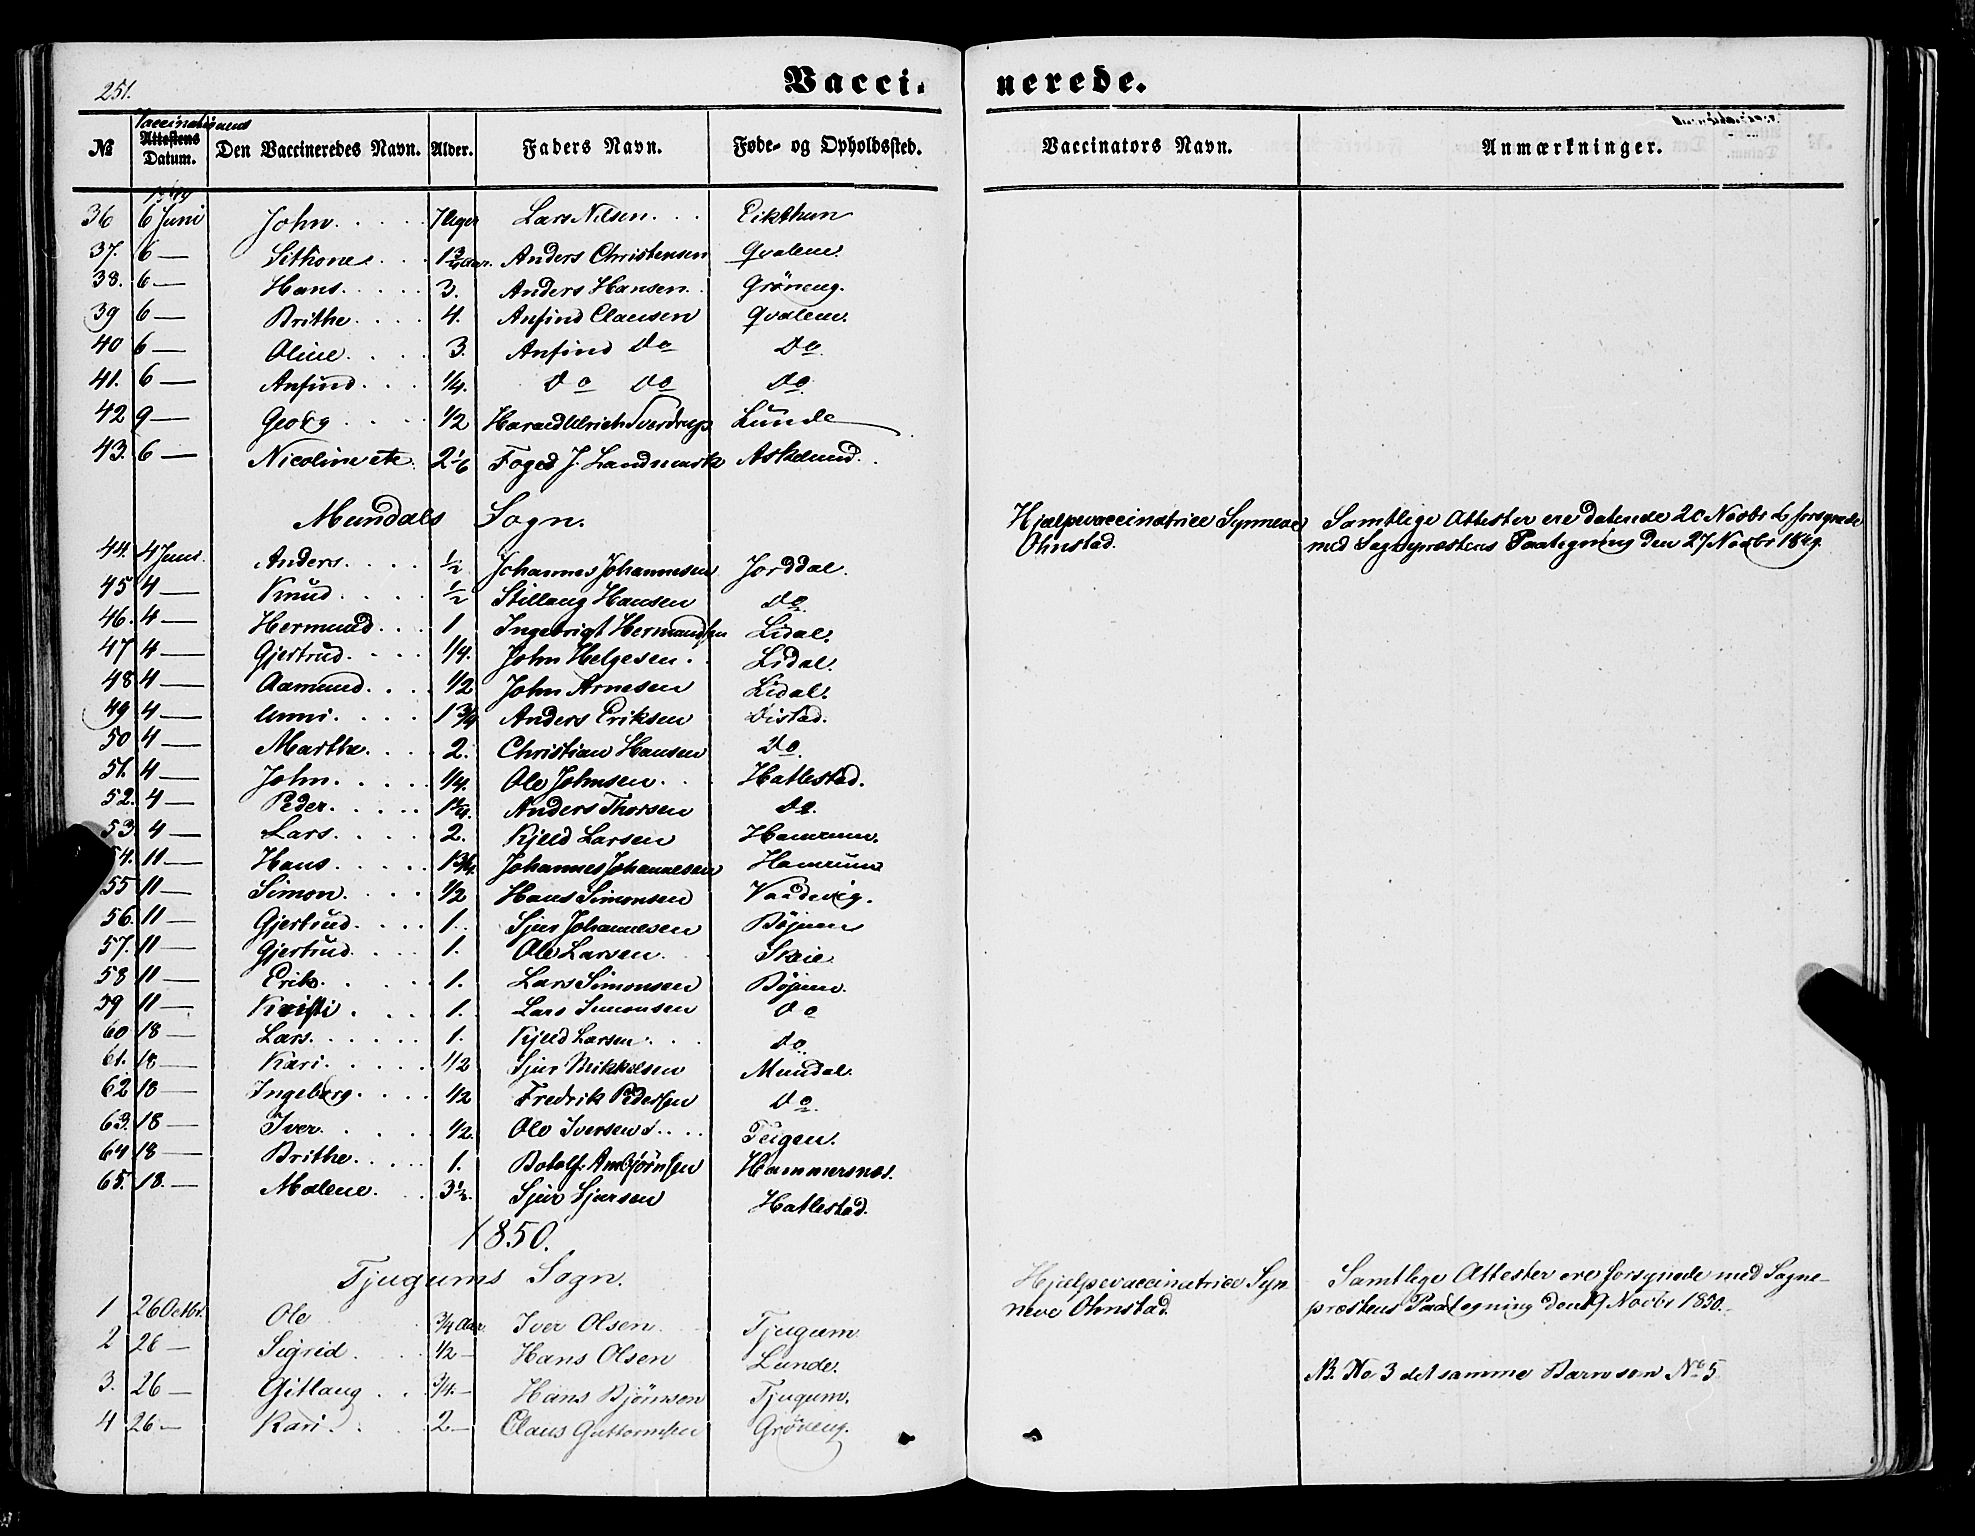 251.
Vacci- nerede.
№ Vaccinationens Attestens Datum. Den Vaccineredes Navn. Alder. Faders Navn. Føde- og Opholdssted. Vaccinators Navn. Anmærkninger.
1849
36 6 Juni John 7 Uger Lars Nilsen Eikthun
37. 6 — Sithone 1 3/4 Aar. Anders Christensen Qvalem
38. 6 — Hans 3. Anders Hansen Grøneng.
39 6 — Brithe 4. Anfind Clausen Qvalem.
40 6 — Oline 3. Anfind Do Do
41. 6 — Anfind 1/4. Do Do Do
42 9 — Georg 1/2 Harald Ulrich Sverdrup Lunde
43. 6 — Nicoline etc. 2 1/6 Foged J. Landmark Askelund.
Mundals Sogn. Hjælpevaccinatrice Synneve Samtlige Attester ere daterede 20 Novbr & forsynede
Ohnstad. med Sognepræstens Paategning den 27 Novbr 1849.
44. 4 Juni Anders 1/2 Johannes Johannesen Jorddal.
45 4 — Knud 1/2 Stillaug Hansen Do
46. 4 — Hermund 1 Ingebrigt Hermundsen Lidal.
47 4 — Gjertrud 1/4. John Helgesen Lidal.
48 4 — Aamund 1/2 John Arnesen Lidal.
49 4 — Anni 1 3/4 Anders Eriksen Distad.
50 4 — Marthe 2. Christian Hansen Do
51. 4 — John 1/4. Ole Johnsen Hatlestad.
52. 4 — Peder 1 3/4. Anders Thorsen Do.
53. 4 — Lars 2. Kjeld Larsen Hamrum.
54. 11 — Hans 1 3/4. Johannes Johannesen Hamrum
55 11 — Simon 1/2 Hans Simonsen Vaadevig.
56. 11 — Gjertrud 1. Sjur Johannesen Bøjum
57. 11 — Gjertrud 1. Ole Larsen Skeie
58 11 — Erik 1. Lars Simonsen Bøjum.
59 11 — Kristi 1. Lars Simonsen Do
60 18 — Lars 1. Kjeld Larsen Do
61. 18 — Kari 1/2 Sjur Mikkelsen Mundal.
62 18 — Ingeborg 1/2 Fredrik Pedersen Do.
63. 18 — Iver 1/2. Ole Iversen Teigen.
64 18 — Brithe 1. Botolf Ambjørnsen Hammersnæs.
65. 18. — Malene 3 1/2. Sjur Sjursen Hatlestad.
1850.
Tjugums Sogn. Hjælpevaccinatrice Syn- Samtlige Attester ere forsynede med Sogne-
neve Ohnstad. præstens Paategning den 19 Novbr 1850.
1 26 Octbr. Ole 3/4 Aar Iver Olsen Tjugum
2 26 — Sigrid 1/2 — Hans Olsen Lunde.
3. 26 — Gitlaug 3/4. — Hans Bjørnson Tjugum. NB. No 3 det samme Barn som No 5
4 26 — Kari 2 — Claus Guttormsen Grøneng.